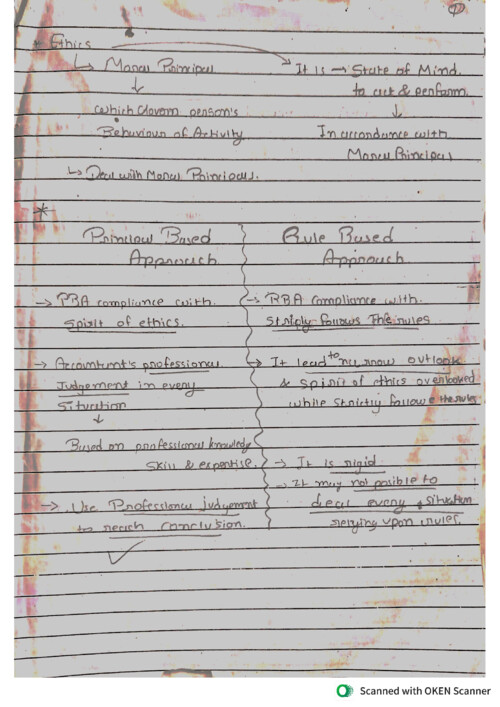 ①
* Ethics
↳ Moral Principal
It is → State of Mind.
to act & perform
↓
↓
which Govern person's
Behaviour of Activity
In accordance with
Moral Principals
↳ Deal with Moral Principals.
*
Principal Based
Approach
Rule Based
Approach
→ PBA compliance with
spirit of ethics.
→ RBA compliance with
strictly follows the rules
→ Accountant's professional
Judgement in every
situation
↓
→ It lead to narrow outlook
& spirit of ethics overlooked
while strictly follow the rules
Based on professional knowledge
skill & expertise.
→ It is rigid
→ It may not posible to
deal every situation
relying upon rules.
→ Use Professional judgement
to reach conclusion.
Scanned with OKEN Scanner